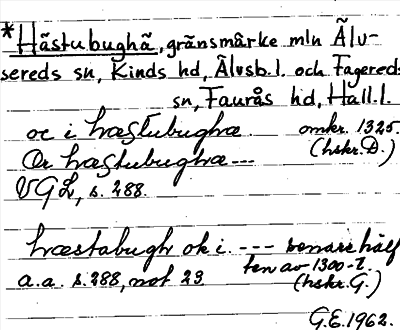 *Hästubughä, gränsmärke mln Älv-
sereds sn, Kinds hd, Älvsb.l. och Fagereds
sn, Faurås hd, Hall.l.
oc i hæstubughæ omkr. 1325.
Or hæstubughæ --- (hskr. D.)
VGL, s. 288.
hæstabugh ok i. --- senare hälf
ten av 1300-t.
a.a. s. 288, not 23 (hskr. G.)
G.E. 1962.